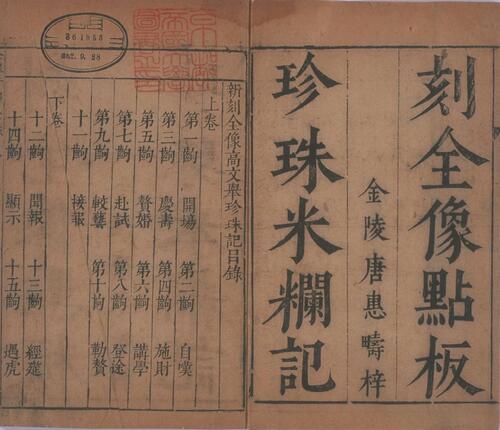 刻全像點板
金陵唐惠疇梓
珍珠米糷記
新刻全像高文舉珍珠記目錄
上卷
第一齣 開場 第二齣 自嘆
第三齣 慶壽 第四齣 施財
第五齣 贅婚 第六齣 講學
第七齣 赴試 第八齣 登途
第九齣 較藝 第十齣 勒贅
十一齣 接報
下卷
十二齣 聞報 十三齣 經筵
十四齣 顯示 十五齣 遇虎
361853
2. 9. 28